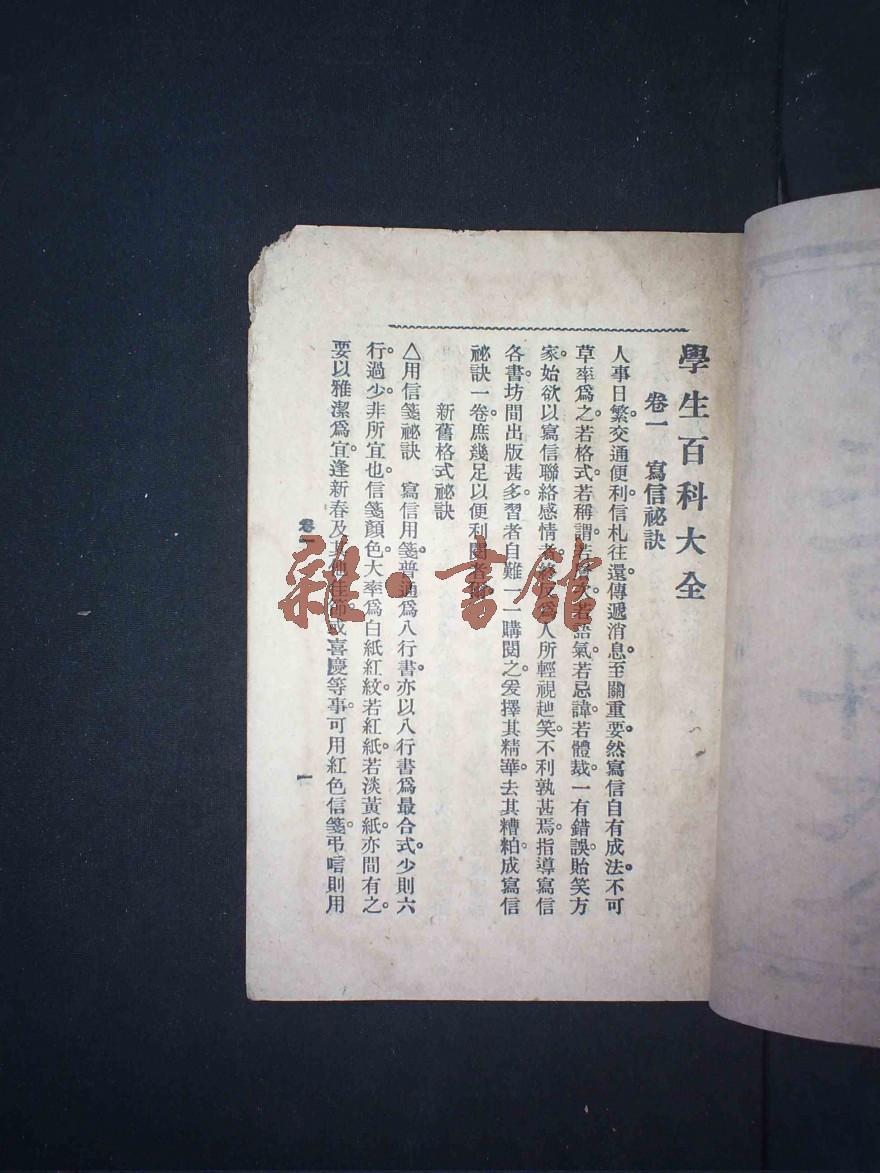 學生百科大全
卷一 寫信祕訣
人事日繁。交通便利。信札往還。傳遞消息。至關重要。然寫信自有成法。不可
草率爲之。若格式。若稱謂。若層次。若語氣。若忌諱。若體裁。一有錯誤。貽笑方
家。始欲以寫信聯絡感情者。 爲人所輕視 笑。不利孰甚焉。指導寫信
各書。坊間出版甚多。習者自難一一購閱之。爰擇其精華。去其糟粕。成寫信
祕訣一卷。庶幾足以便利閱者
新舊格式祕訣
△用信箋祕訣 寫信用箋。普通爲八行書。亦以八行書爲最合式。少則六
行。過少非所宜也。信箋顏色。大率爲白紙紅紋。若紅紙。若淡黃紙。亦間有之。
要以雅潔爲宜。逢新春及其他佳節。或喜慶等事。可用紅色信箋。弔唁則用
卷一
一
雜·書館